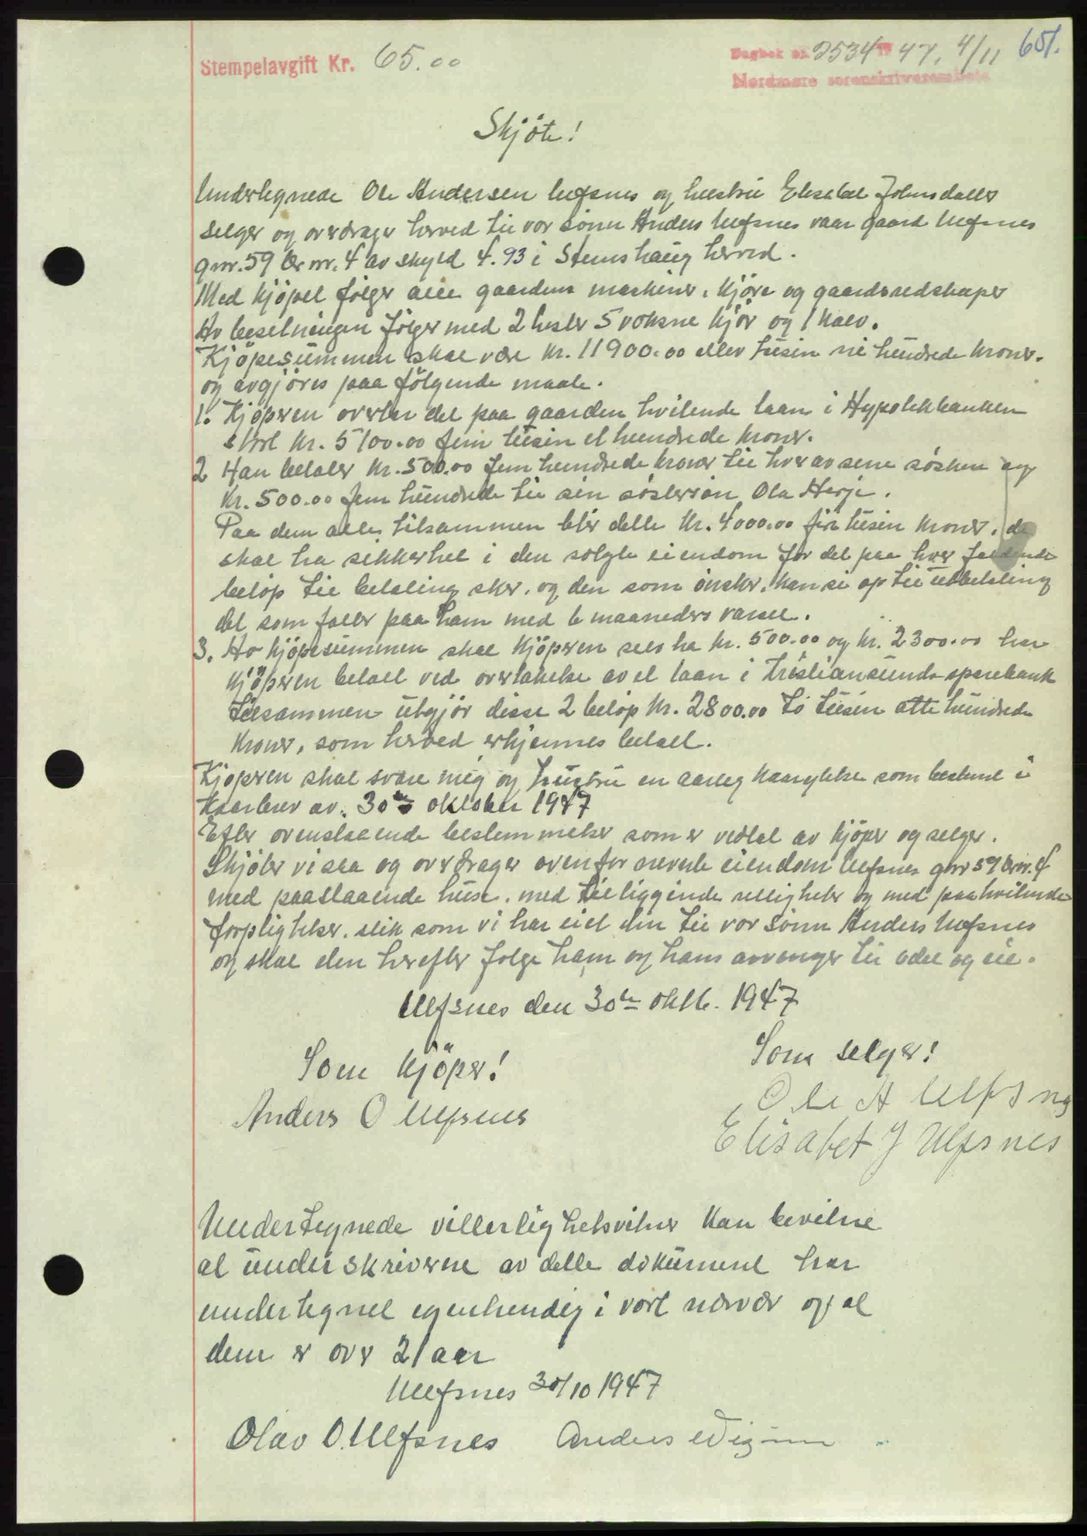 Stempelavgift Kr. 65.00
Dagbok nr. 2534 19 47, 4/11 651.
Nordmøre sorenskriverembete
Skjöte!
Undertegnede Ole Andersen Ulfsnes og hustru Elisabet Johnsdatter
selger og overdrager herved til vor sönn Anders Ulfsnes vaar gaard Ulfsnes
gnr. 59 br nr. 4 av skyld 4.93 i Stemshaug herred.
Med kjöpet følger alle gaardens maskiner, kjöre og gaardsredskaper
Av besetningen følger med 2 hester 5 voksne kjör og 1 kalv.
Kjöpesummen skal være kr. 11900.00 ellev tusin ni hundrede kroner.
og avgjöres paa fölgende maate.
1. Kjöperen overtar det paa gaarden hvilende laan i Hypotekbanken
stort kr. 5100.00 fem tusin et hundrede kroner.
2 Han betaler kr. 500.00 fem hundrede kroner til hver av sine søsken og
kr. 500.00 fem hundrede til sin søstersøn Ola Herje.
Paa dem alle tilsammen blir dette kr. 4000.00 fire tusin kroner, de
skal ha sikkerhet i den solgte eiendom for det paa hver faldende
beløp til betaling sker, og den som ønsker, kan si op til utbetaling
det som faller paa ham med 6 maaneders varsel.
3. Av kjöpesummen skal kjöperen selv ha kr. 500.00 og kr. 2300.00 har
kjöperen betalt ved overtakelse av et laan i Kristiansunds sparebank
tilsammen utgjör disse 2 beløp kr. 2800.00 to tusin atte hundrede
kroner, som herved erkjennes betalt.
Kjöperen skal svare mig og hustru en aarleg kaarytelse som bestemt i
Kaarbrev av. 30te oktober 1947
Efter ovenstaaende bestemmelser som er vedtat av kjöper og selger.
Skjöter vi saa og overdrager ovenfor nevnte eiendom Ulfsnes gnr 59 br nr. 4
med paastaaende huse, med tilliggende rettigheter og med paahvilende
forpligtelser, slik som vi har eiet den til vor sönn Anders Ulfsnes
og skal den herefter følge ham og hans arvinger til odel og eie.
Ulfsnes den 30te oktb. 1947
Som kjöper! Som selger!
Anders O Ulfsnes Ole A Ulfsnes
Elisabet J Ulfsnes
Undertegnede vitterlighetsvitner kan bevitne
at underskriverne av dette dokument har
undertegnet egenhendig i vort nærvær og at
dem er over 21 aar
Ulfsnes 30/10 1947
Olav O. Ulfsnes Anders